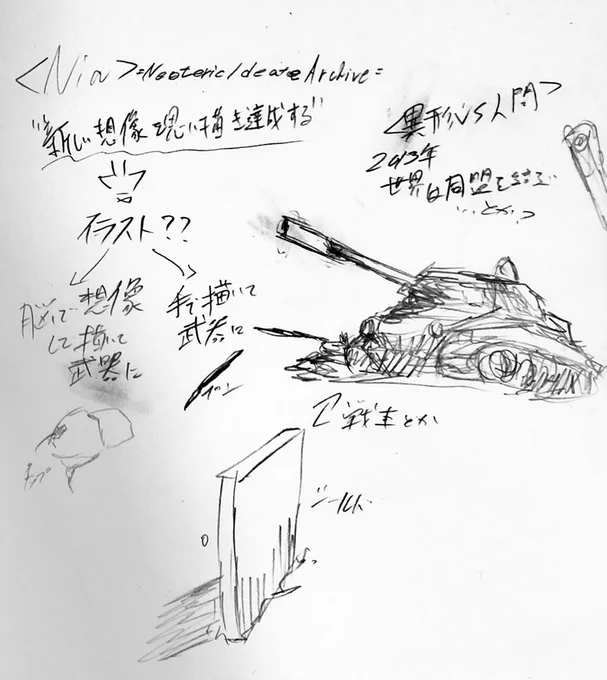 <Nia>=Neoteric/deate Archive=
"新しい想像を思い描き達成する"
イラスト??
脳で想像
して描いて
武器に
手で描いて
武器に
ペン
<異形VS人間>
2013年
世界は同盟を結んで
...とか?
戦車とか
シールド